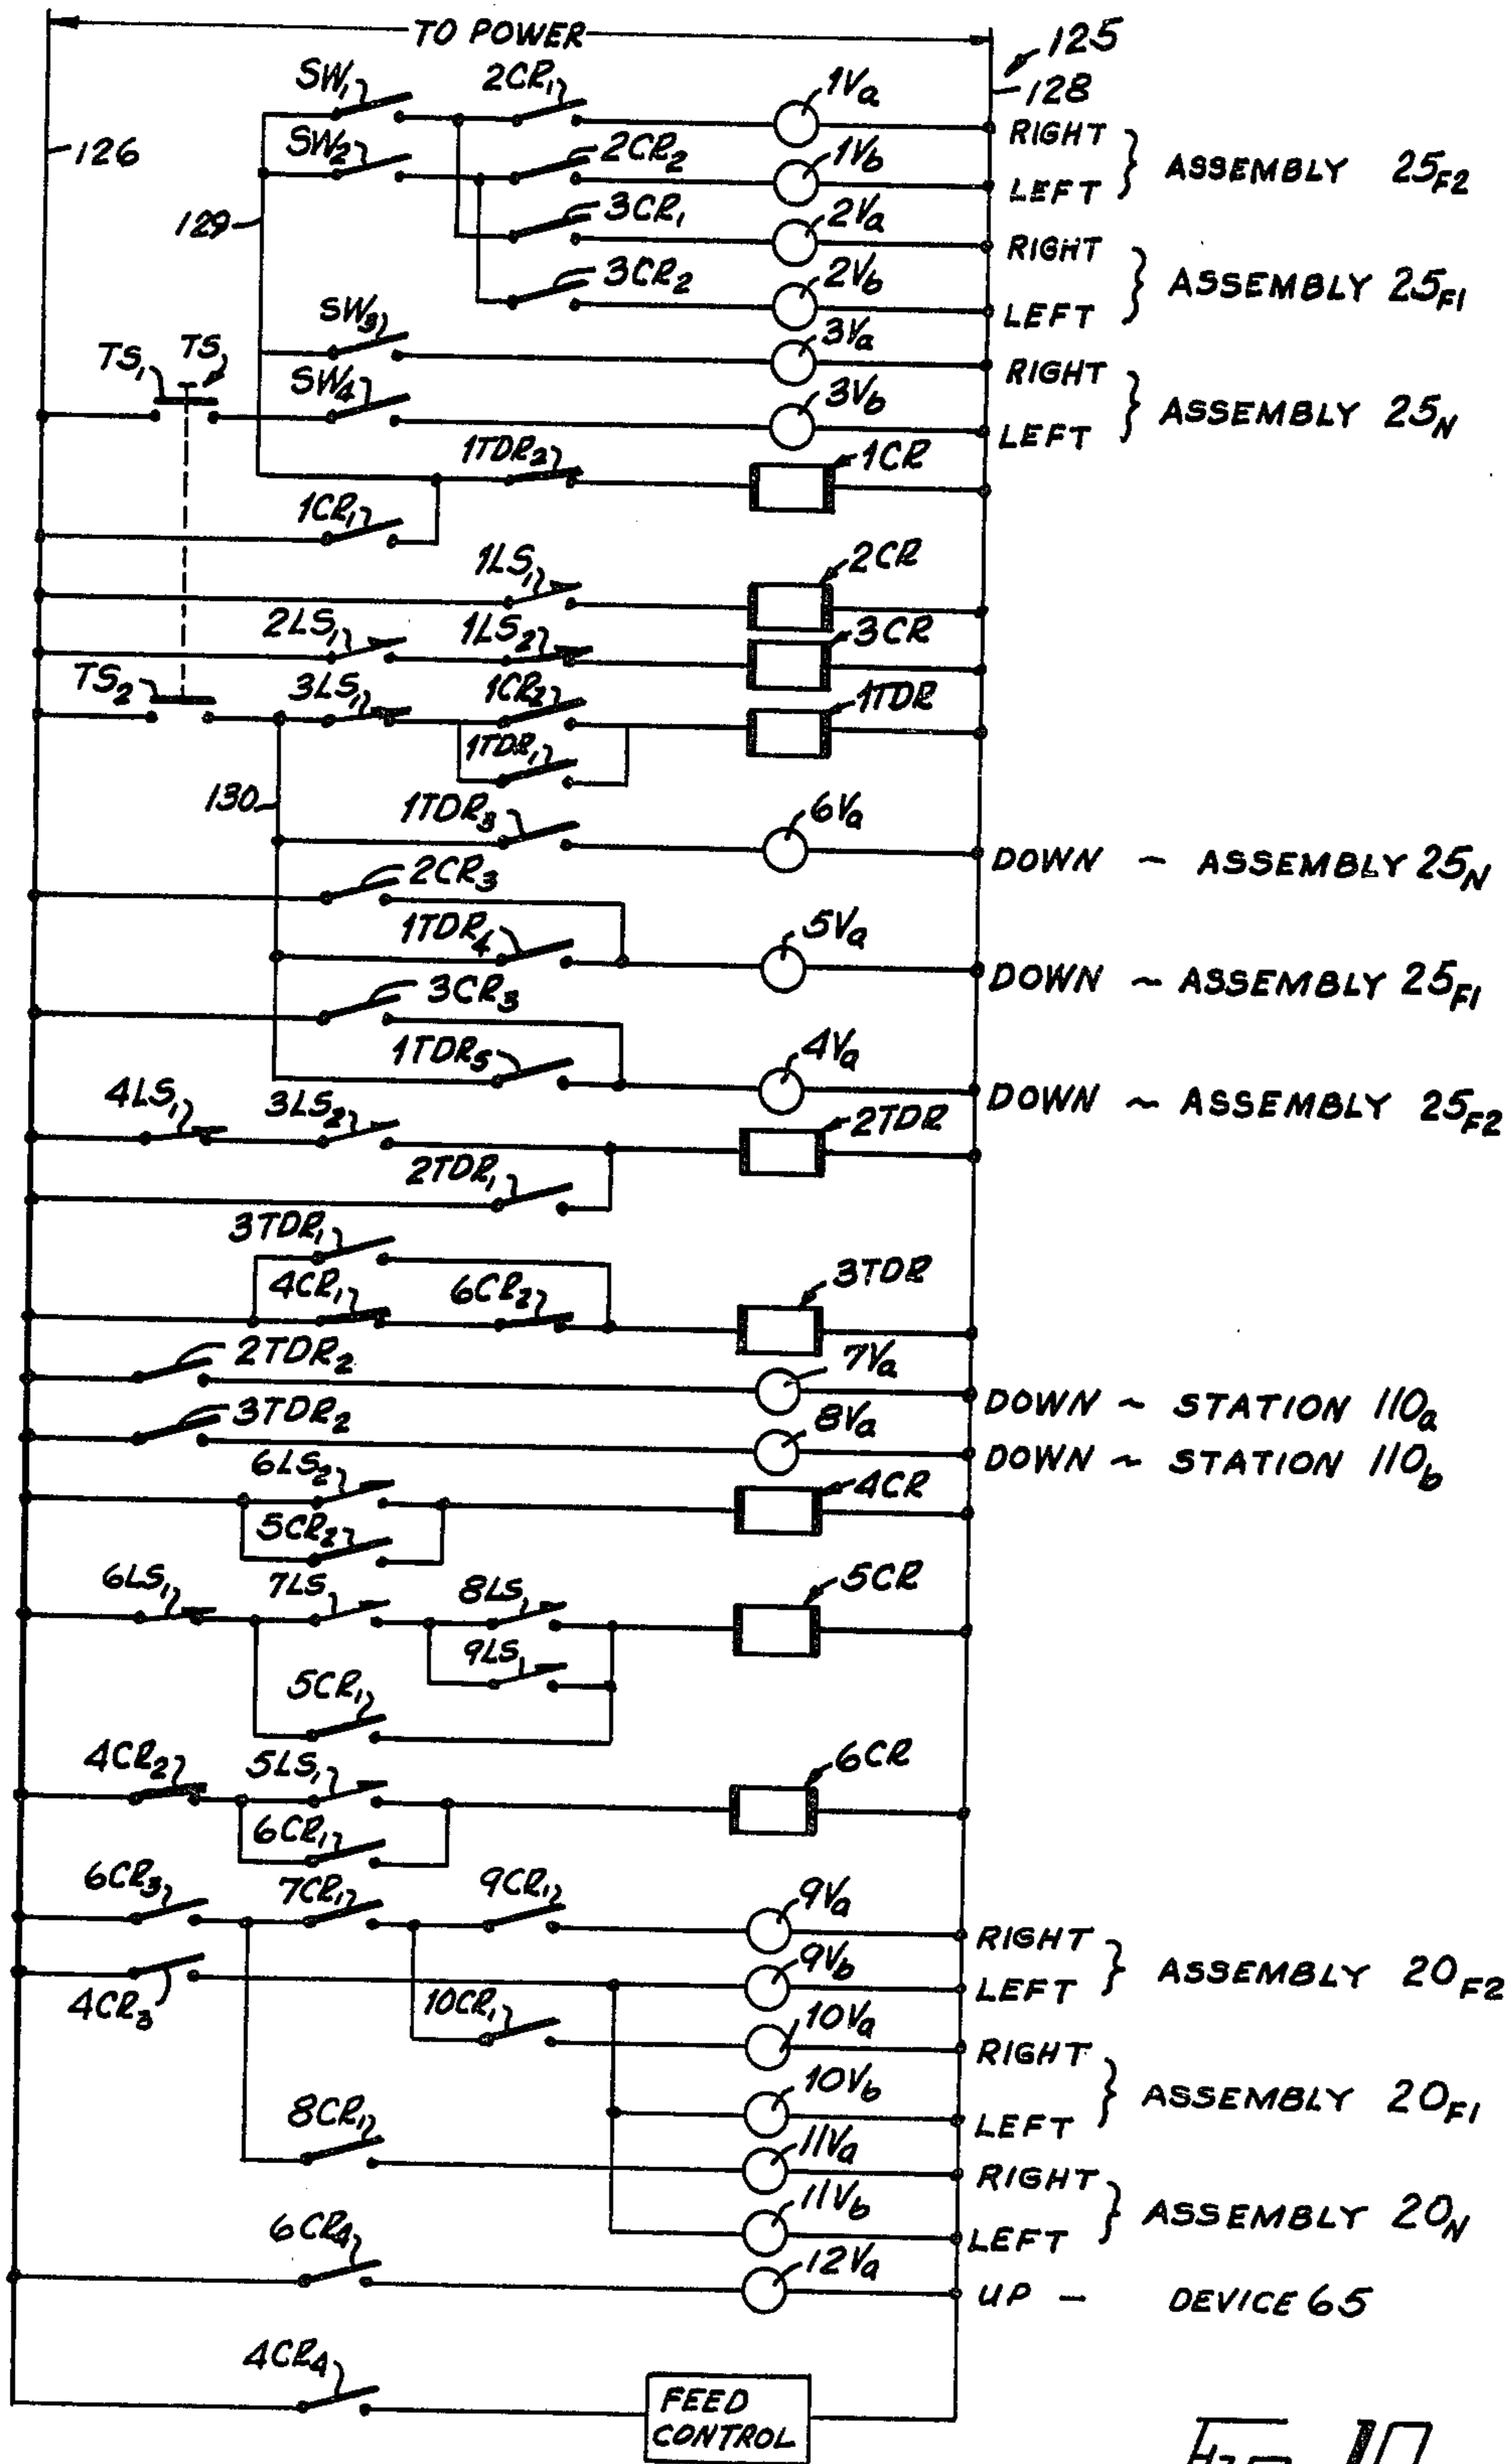 TO POWER
125
SW₁ 2CR₁ 1Vₐ 128
126 RIGHT
SW₂ 2CR₂ 1V_b } ASSEMBLY 25_F2
LEFT
129 3CR₁ 2Vₐ
RIGHT
3CR₂ 2V_b } ASSEMBLY 25_F1
LEFT
SW₃ 3Vₐ
TS₁ TS RIGHT
SW₄ 3V_b } ASSEMBLY 25_N
LEFT
1TDR₂ 1CR
1CR₁
1LS₁ 2CR
2LS₁ 1LS₂ 3CR
TS₂ 3LS₁ 1CR₂ 1TDR
1TDR₁
130
1TDR₃ 6Vₐ
DOWN ~ ASSEMBLY 25_N
2CR₃
1TDR₄ 5Vₐ
DOWN ~ ASSEMBLY 25_F1
3CR₃
1TDR₅ 4Vₐ
DOWN ~ ASSEMBLY 25_F2
4LS₁ 3LS₂ 2TDR
2TDR₁
3TDR₁
4CR₁ 6CR₂ 3TDR
2TDR₂ 7Vₐ
DOWN ~ STATION 110ₐ
3TDR₂ 8Vₐ
DOWN ~ STATION 110_b
6LS₂ 4CR
5CR₂
6LS₁ 7LS₁ 8LS₁ 5CR
9LS₁
5CR₁
4CR₂ 5LS₁ 6CR
6CR₁
6CR₃ 7CR₁ 9CR₁ 9Vₐ
RIGHT
9V_b } ASSEMBLY 20_F2
LEFT
4CR₃ 10CR₁ 10Vₐ
RIGHT
10V_b } ASSEMBLY 20_F1
LEFT
8CR₁ 11Vₐ
RIGHT
11V_b } ASSEMBLY 20_N
LEFT
6CR₄ 12Vₐ
UP - DEVICE 65
4CR₄
FEED
CONTROL